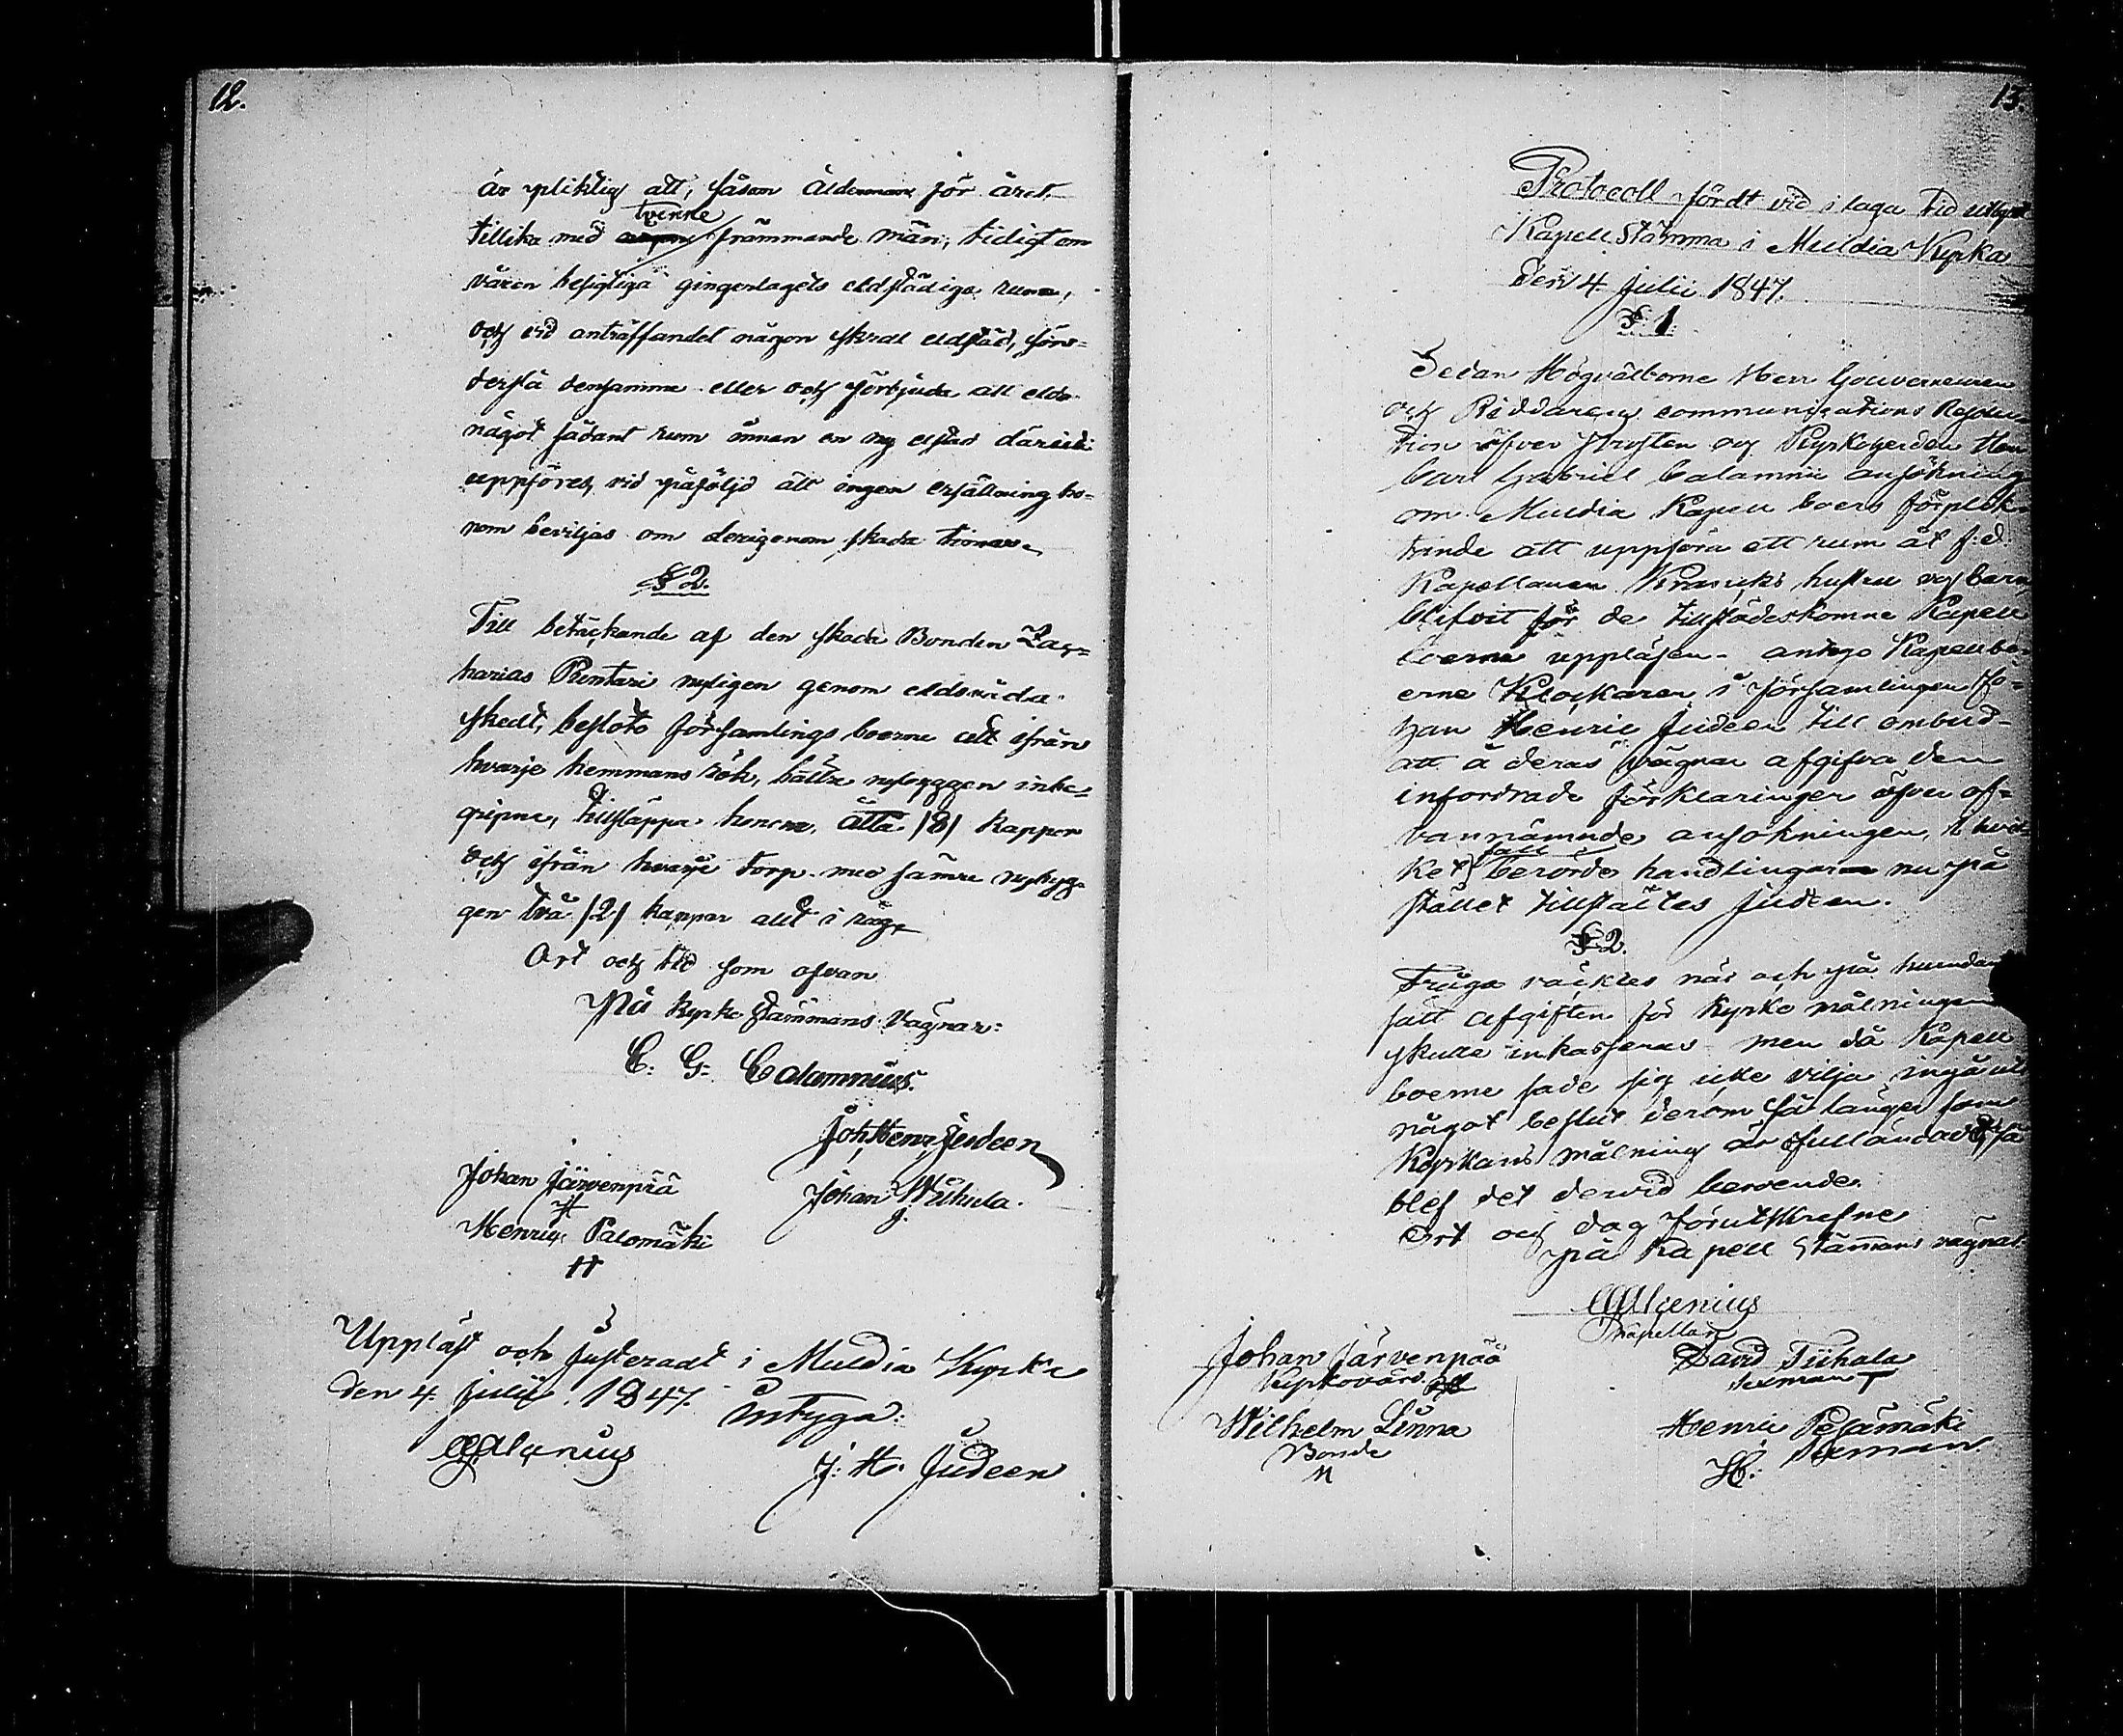 12.
är pliktig att, såsom Ålderman för året
tillika med tvenne främmande män, tidigt om
våren besigtiga gingerlagets eldstädiga rum,
och vid anträffandet någon skral eldstad, sön-
derslå densamma eller och förbjuda att elda
något sådant rum innan en ny elstad däruti
uppföres, vid påföljd att ingen ersättning ho-
nom beviljas om derigenom skada timar.
§ 2.
Till betäckande af den skada Bonden Zac-
harias Rentari nyligen genom eldsvåda
skedt, beslöto församlings boerne att ifrån
hvarje hemmans rök, bättre nybyggen inbe-
gripne, tillsläppa honom, åtta /8/ kappor
och ifrån hvarje torp med sämre nybyg-
gen två /2/ kappor allt i råg.
Ort och tid som ofvan
På kyrko stämmans vägnar:
C. G. Calamnius.
Joh. Henr. Judeen
Johan Järvenpää
Johan Wiihula.
J.
Henric Palomäki
H
Uppläst och Justeradt i Muldia Kyrka
den 4 Julii 1847. intyga:
CGCalamnius
J: H. Judeen
13
Protocoll fördt vid i laga tid utlyst
Kapell Stämma i Muldia Kyrka
den 4 Julii 1847.
§ 1
Sedan Högvälborne Herr Gouverneuren
och Riddarens communications Resolu-
tion öfver Prosten och Kyrkoherden Herr
Carl Gabriel Calamnii ansökning
om Muldia Kapell boers förplik-
tande att uppföra ett rum åt f.d.
Kapellanen Krancks hustru och barn
blifvit för de tillstädeskomne Kapell
boerne uppläsen antogo Kapellbo-
erne Klockaren i församlingen Jo-
han Henric Judeen till ombud
att å deras vägnar afgifva den
infordrade förklaringen öfver of-
vannämnde ansökningen, i hvil-
ket fall berörde handlingar nu på
stället tillstältes Judeen.
§ 2.
Fråga väcktes när och på hurudant
sätt afgiften för kyrko målningen
skulle inkasseras men då Kapell
boerne sade sig icke vilja ingå uti
något beslut derom så länge som
Kyrkans målning är ofulländad, så
blef det dervid beroende.
Ort och dag förutskrefne
på Kapell Stämmans vägnar
Kapellan
Johan Järvenpää
Kyrkovärd
David Tiihala
Sexman T
Wilhelm Linna
Bonde
Henric Pesämäki
Sexman
H.